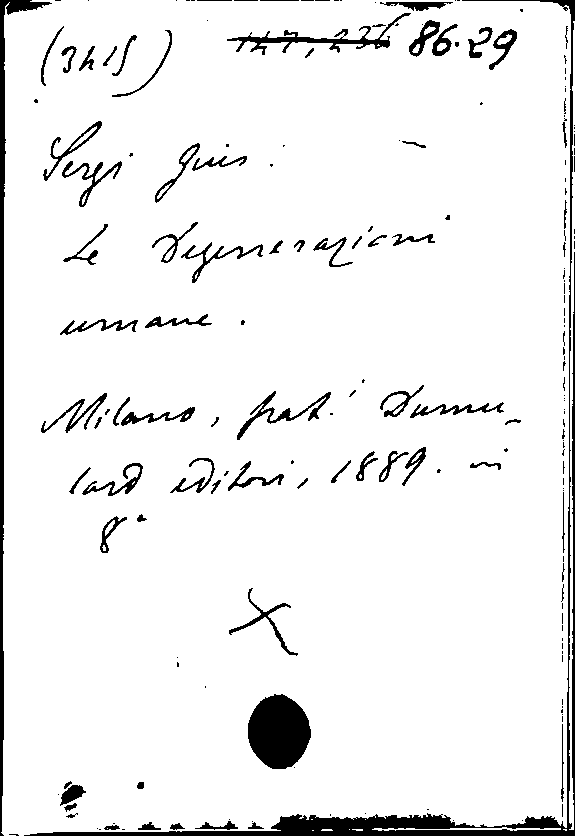 (3415) 147,236 86.29
Sergi Gius.
Le Degenerazioni
umane.
Milano, frat.i Dumo-
lard editori, 1889. in
8°
X